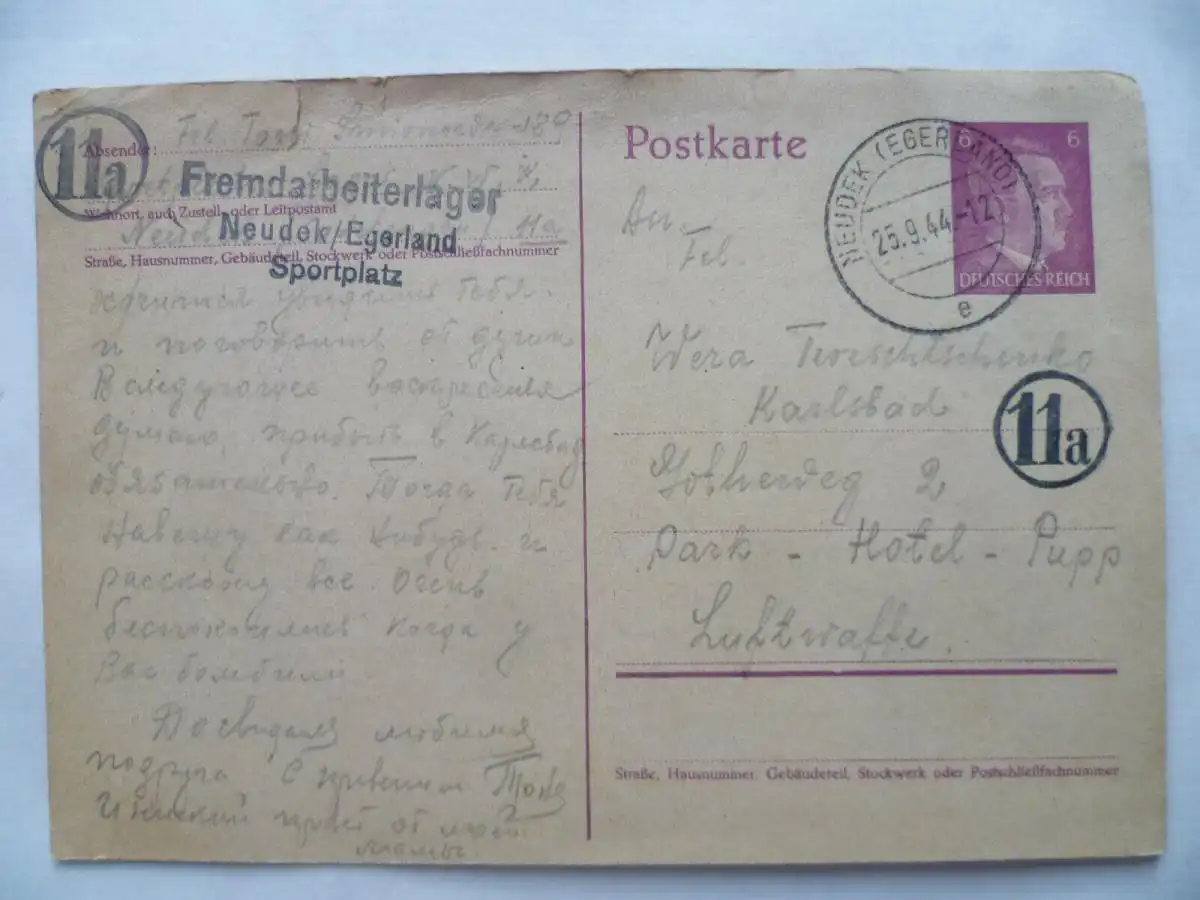 11a
Absender: Frl.
Fremdarbeiterlager
Wohnort, auch Zustell- oder Leitpostamt
Neudek/Egerland
Straße, Hausnummer, Gebäudeteil, Stockwerk oder Postschließfachnummer
Sportplatz
увидеть тебя.
и поговорить от души
В следующее воскресенья
думаю прибыть в Карлсбад
обязательно. Тогда тебя
навещу как нибудь и
расскажу все. Очень
беспокоились когда у
Вас бомбили
Досвидания любимая
подруга С приветом Тося
привет от моей
мамы.
Postkarte
6 6
DEUTSCHES REICH
NEUDEK (EGERLAND)
25.9.44.-12
e
An
Frl.
Wera Tereschtschenko
Karlsbad
11a
2
Park - Hotel - Pupp
Luftwaffe.
Straße, Hausnummer, Gebäudeteil, Stockwerk oder Postschließfachnummer